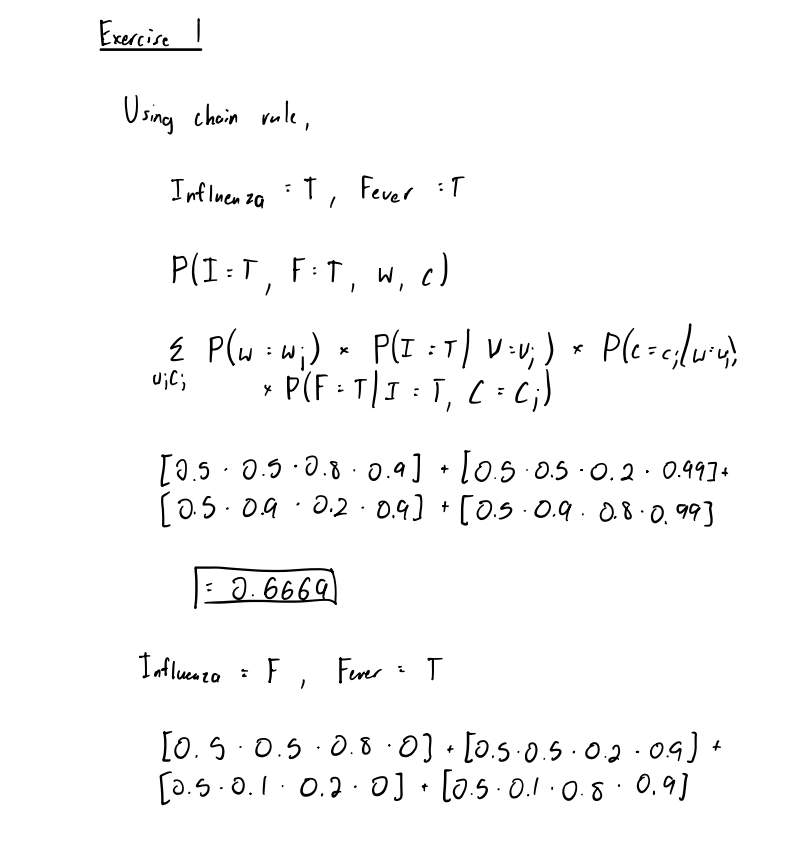 Exercise 1
Using chain rule,
Influenza = T, Fever = T
P(I = T, F = T, W, C)
Σ P(W = w_j) * P(I = T | V = v_j) * P(C = c_j | W = v_j)
v_j c_j * P(F = T | I = T, C = C_j)
[0.5 · 0.5 · 0.8 · 0.9] + [0.5 · 0.5 · 0.2 · 0.99] +
[0.5 · 0.9 · 0.2 · 0.9] + [0.5 · 0.9 · 0.8 · 0.99]
= 0.6669
Influenza = F, Fever = T
[0.5 · 0.5 · 0.8 · 0] + [0.5 · 0.5 · 0.2 · 0.9] +
[0.5 · 0.1 · 0.2 · 0] + [0.5 · 0.1 · 0.8 · 0.9]